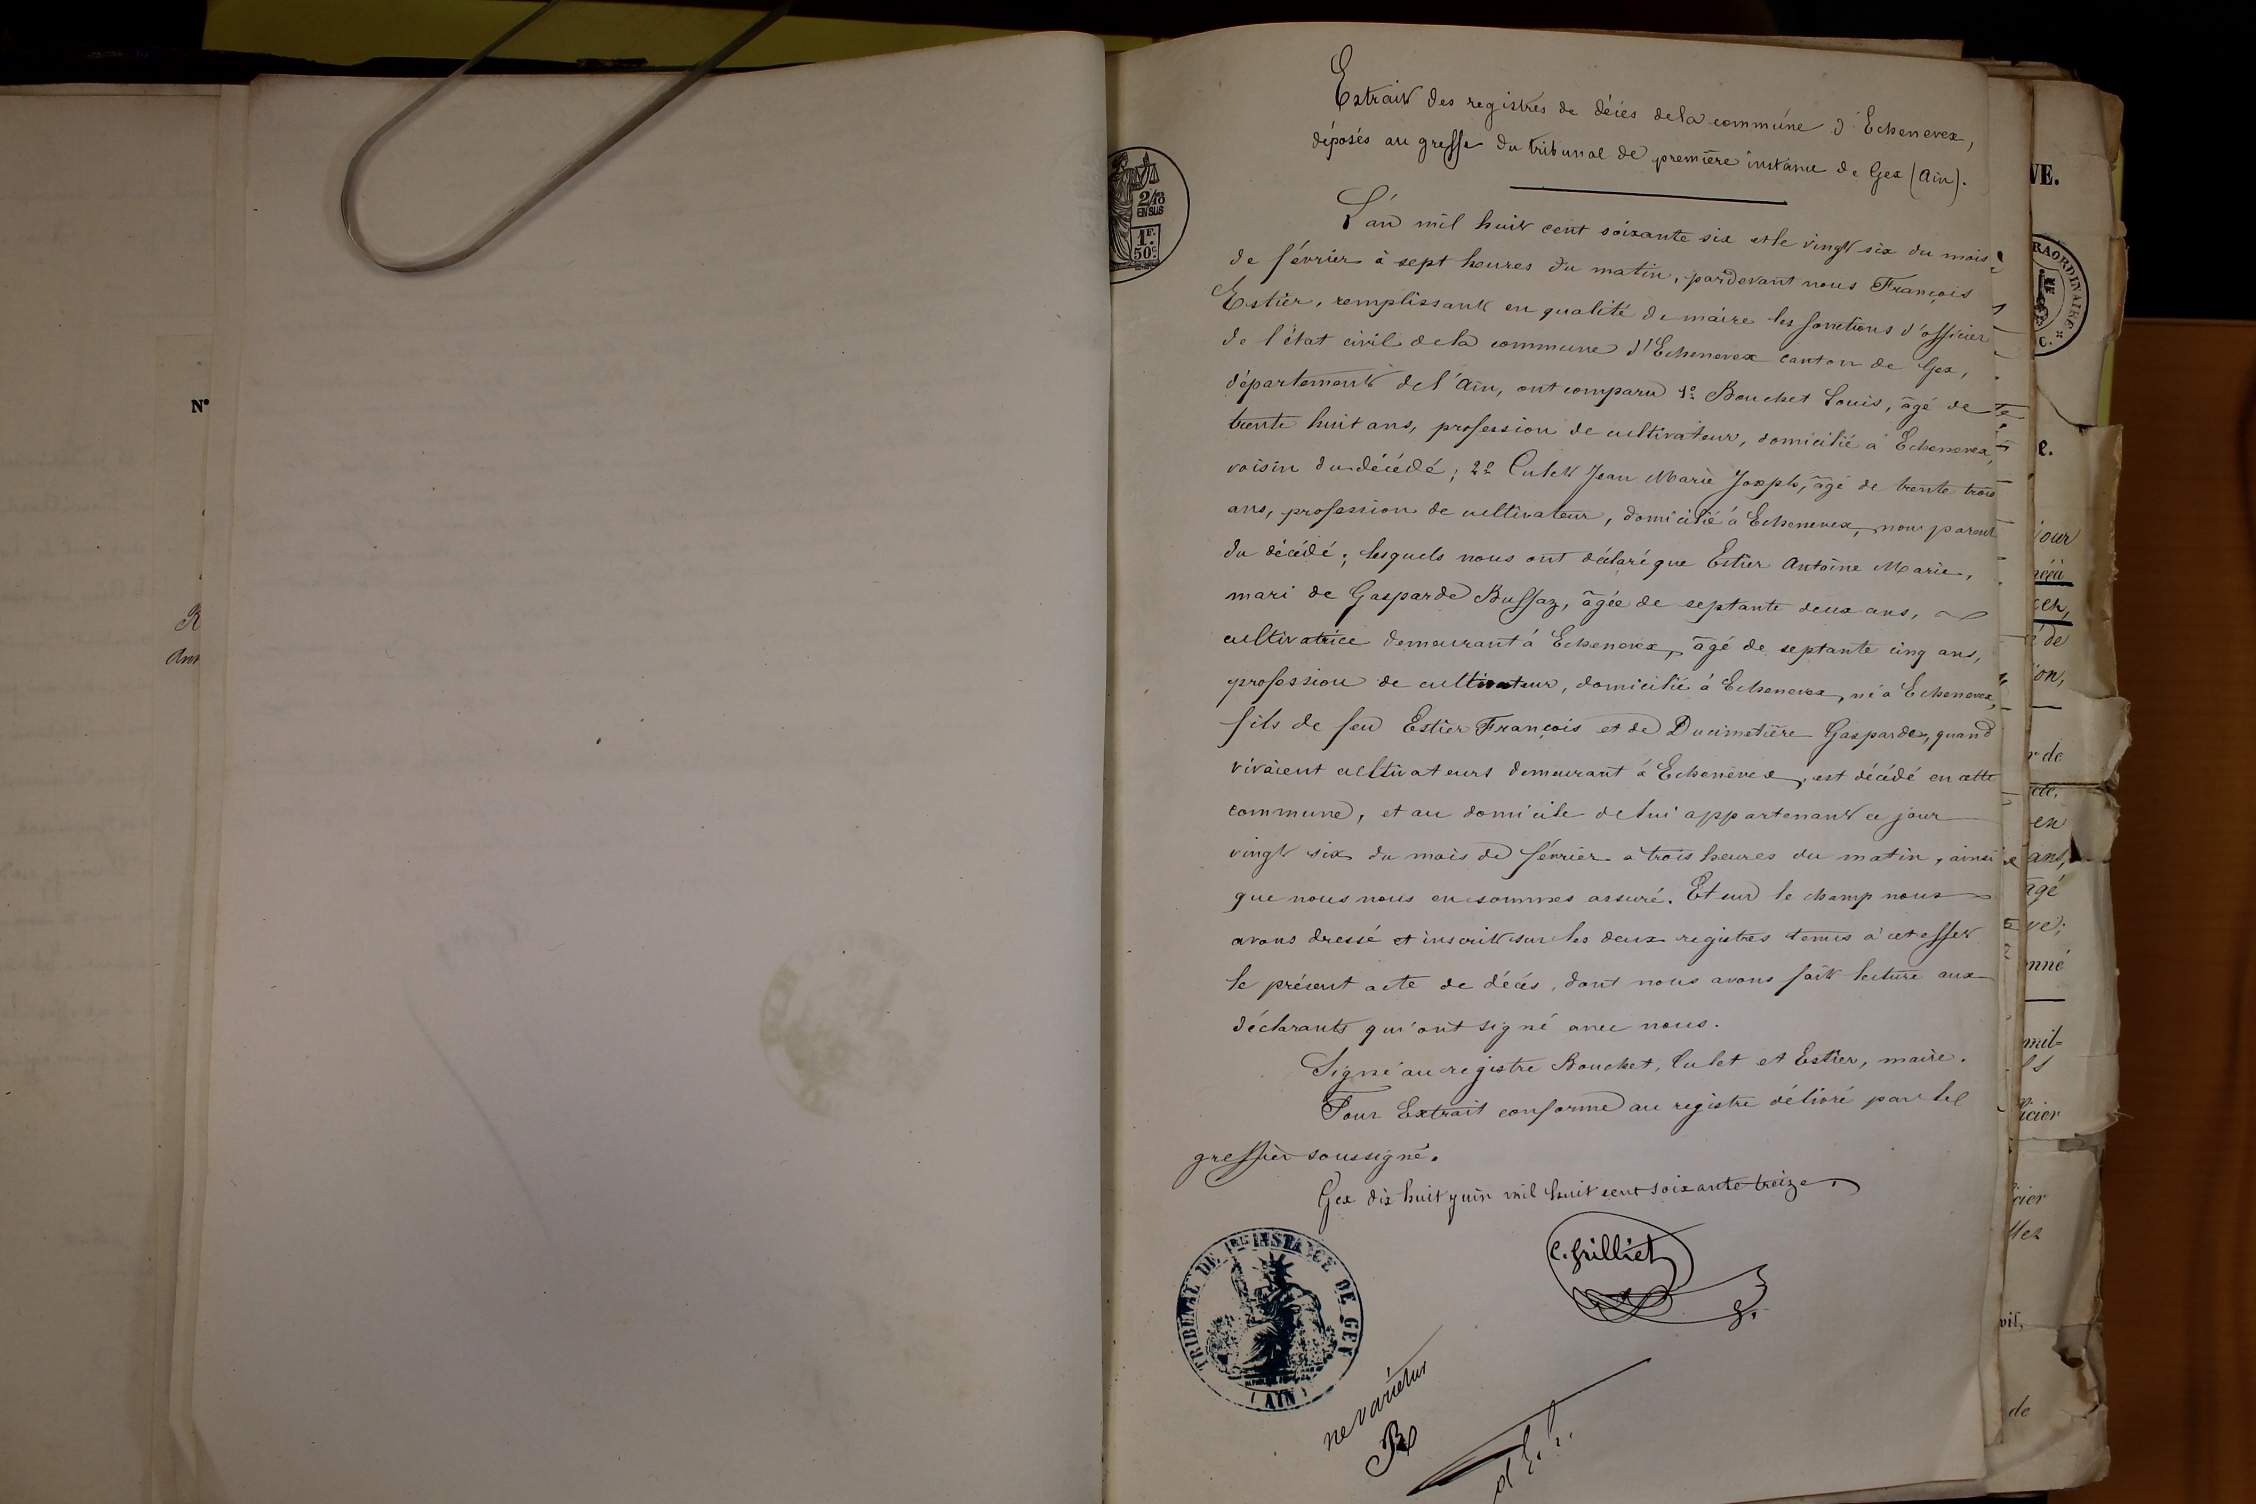 N°
R
Ann
Extrait des registres de décès de la commune d'Echenevex,
déposés au greffe du tribunal de première instance de Gex (Ain).
2/10
EN SUS
1F.
50c.
L'an mil huit cent soixante six et le vingt six du mois
de février à sept heures du matin, pardevant nous François
Estier, remplissant en qualité de maire les fonctions d'officier
de l'état civil de la commune d'Echenevex canton de Gex,
département de l'Ain, ont comparu 1º Bouchet Louis, âgé de
trente huit ans, profession de cultivateur, domicilié à Echenevex,
voisin du décédé; 2º Culet Jean Marie Joseph, âgé de trente trois
ans, profession de cultivateur, domicilié à Echenevex, non parent
du décédé; lesquels nous ont déclaré que Estier Antoine Marie,
mari de Gasparde Buffaz, âgée de septante deux ans,
cultivatrice demeurant à Echenevex, âgé de septante cinq ans,
profession de cultivateur, domicilié à Echenevex, né à Echenevex,
fils de feu Estier François et de Ducimetière Gasparde, quand
vivaient cultivateurs demeurant à Echenevex, est décédé en cette
commune, et au domicile de lui appartenant ce jour
vingt six du mois de février à trois heures du matin, ainsi
que nous nous en sommes assuré. Et sur le champ nous
avons dressé et inscrit sur les deux registres tenus à cet effet
le présent acte de décès, dont nous avons fait lecture aux
déclarants qui ont signé avec nous.
Signé au registre Bouchet, Culet et Estier, maire.
Pour Extrait conforme au registre délivré par le
greffier soussigné.
Gex dix huit juin mil huit cent soixante treize.
C. Grilliet
g.
TRIBUNAL DE 1RE INSTANCE DE GEX
(AIN)
ne varietur
VE.
RAORDINAIRE
C.
e.
jour
de
ion,
de
en
ans,
âgé
ve;
onné
mil=
icier
cier
vil,
de